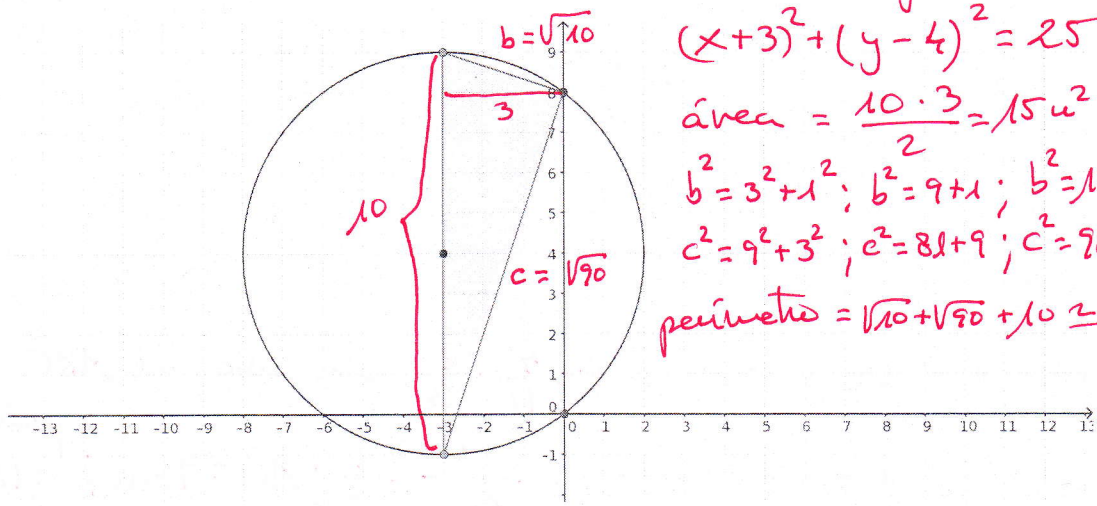 b=√10
(x+3)²+(y-4)²=25
área = 10·3/2 = 15u²
b²=3²+1²; b²=9+1; b²=1
c²=9²+3²; c²=81+9; c²=9
perímetro = √10+√90+10
3
10
c=√90
9
8
7
6
5
4
3
2
1
0
-1
-13 -12 -11 -10 -9 -8 -7 -6 -5 -4 -3 -2 -1 0 1 2 3 4 5 6 7 8 9 10 11 12 13